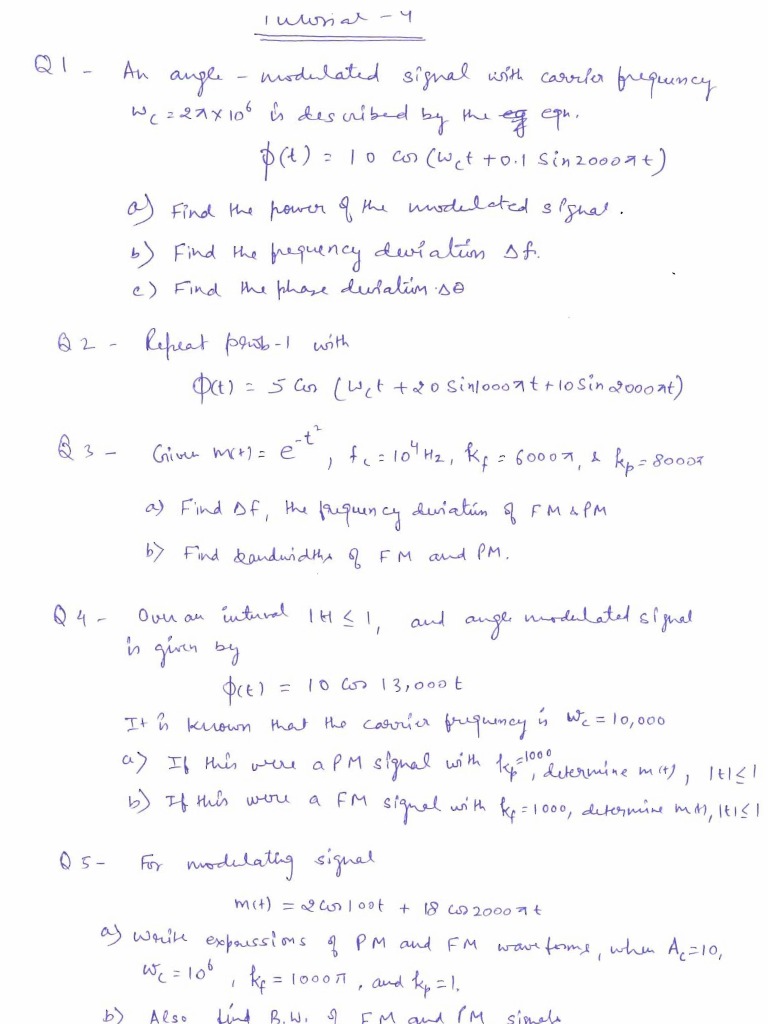 Tutorial - 4
Q1 - An angle - modulated signal with carrier frequency
Wc = 2π×10⁶ is described by the eqn.
ϕ(t) = 10 cos (Wct + 0.1 sin 2000πt)
a) Find the power of the modulated signal.
b) Find the frequency deviation Δf.
c) Find the phase deviation Δθ
Q2 - Repeat prob-1 with
ϕ(t) = 5 cos (Wct + 20 sin 1000πt + 10 sin 2000πt)
Q3 - Given m(t) = e^-t², fc = 10⁴ Hz, kf = 6000π, & kp = 8000π
a) Find Δf, the frequency deviation of FM & PM
b) Find bandwidths of FM and PM.
Q4 - Over an interval |t| ≤ 1, and angle modulated signal
is given by
ϕ(t) = 10 cos 13,000t
It is known that the carrier frequency is Wc = 10,000
a) If this were a PM signal with kp=1000, determine m(t), |t|≤1
b) If this were a FM signal with kf = 1000, determine m(t), |t|≤1
Q5 - For modulating signal
m(t) = 2 cos 100t + 18 cos 2000πt
a) Write expressions of PM and FM wave forms, when Ac=10,
Wc = 10⁶, kf = 1000π, and kp = 1.
b) Also find B.W. of FM and PM signals